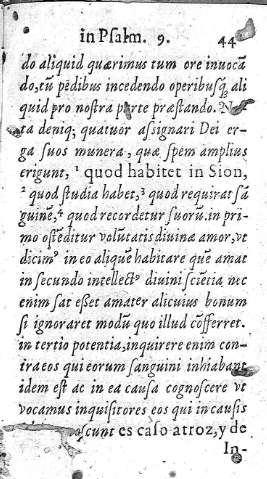 in Psalm. 9. 44
do aliquid quærimus tum ore inuocã
do, tũ pẽdibus incedendo operibusq́; ali
quid pro nostra parte præstando.
ta deniq; quatuor assignari Dei er-
ga suos munera, quæ spem amplius
erigunt, ¹ quod habitet in Sion,
² quod studia habet, ³ quod requirat sã
guinẽ, ⁴ quod recordetur suorũ. in pri-
mo ostẽditur volũtatis diuinæ amor, vt
dicimꝰ in eo aliquẽ habitare quẽ amat
in secundo intellectꝰ diuini sciẽtia nec
enim sat esset amater alicuius bonum
si ignoraret modũ quo illud cõfferret.
in tertio potentia, inquirere enim con-
tra eos qui eorum sanguini inhiabant
idem est ac in ea causa cognoscere vt
vocamus inquisitores eos qui in causis
oscunt es caso atroz, y de
In-